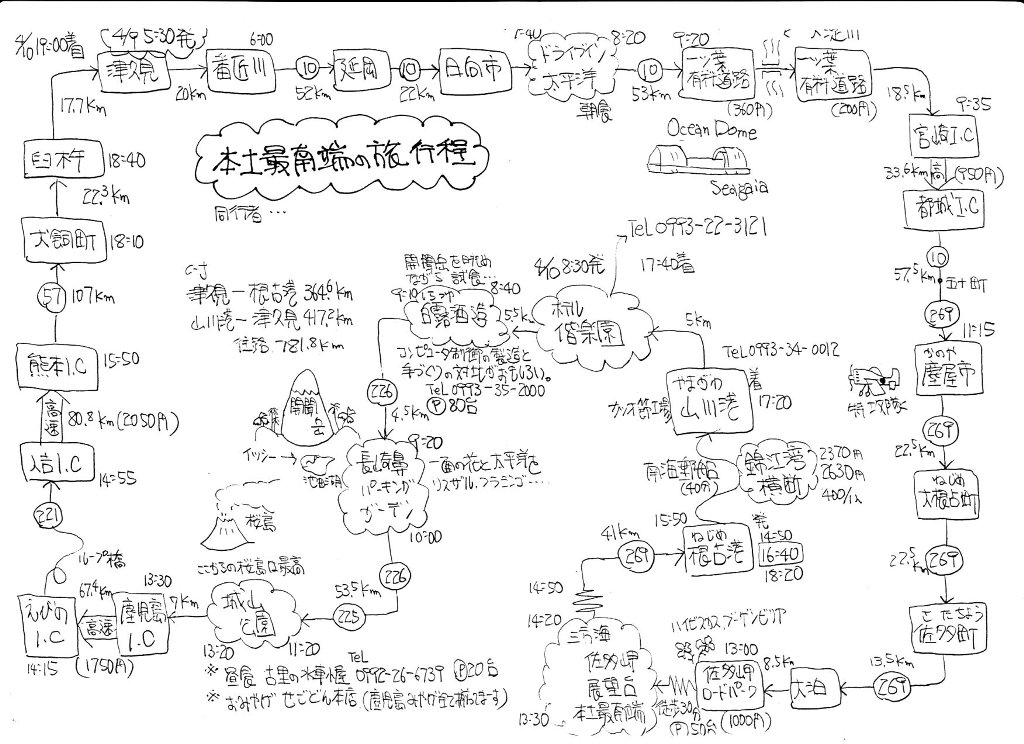 4/10 19:00着
(4/9 5:30発)
津久見
20km
6:00
番匠川
10
52km
延岡
10
22km
日向市
7:40
ドライブイン
太平洋
朝食
8:20
10
53km
9:20
一ッ葉
有料道路
(360円)
一ッ葉
有料道路
(200円)
18.5km
9:35
宮崎I.C
33.6km
高
(950円)
都城I.C
10
57.5km
五十町
269
11:15
かのや
鹿屋市
特攻隊
269
22.5km
ねじめ
大根占町
269
22.5km
さたちょう
佐多町
13.5km
269
大泊
8.5km
ハイビスカス ブーゲンビリア
13:00
佐多岬
ロードパーク
(1000円)
徒歩30分
P50台
三方海
佐多岬
展望台
本土最南端
13:30
14:20
14:50
41km
269
15:50
ねじめ
根占港
発
14:50
16:40
18:20
錦江湾
横断
2370円
2630円
南海郵船
(40分)
やまがわ
山川港
着
17:20
Tel 0993-34-0012
カツオ節工場
5km
ホテル
偕楽園
17:40着
Tel 0993-22-3121
4/10 8:30発
5.5km
8:40
白露酒造
開聞岳を眺め
ながら試食…
コンピュータ制御の製造と
手づくりの対比がおもしろい。
Tel 0993-35-2000
P 80台
226
4.5km
9:20
長崎鼻
パーキング
ガーデン
一面の花と太平洋を
リスザル、フラミンゴ…
10:00
開聞岳
イッシー
池田湖
桜島
226
53.5km
225
ここからの桜島は最高
城山
公園
11:20
13:20
7km
13:30
鹿児島
I.C
67.4km
高速
(1750円)
えびの
I.C
14:15
ループ橋
221
人吉I.C
14:55
高速
80.8km (2050円)
熊本I.C
15:50
57
107km
犬飼町
18:10
22.3km
臼杵
18:40
17.7km
本土最南端の旅行程
同行者…
Ocean Dome
Seagaia
津久見ー根占港 364.6km
山川港ー津久見 417.2km
往路 781.8km
※ 昼食 古里の水車小屋 Tel 0992-26-6739 P20台
※ おみやげ せごどん本店 (鹿児島みやげが全て揃います)